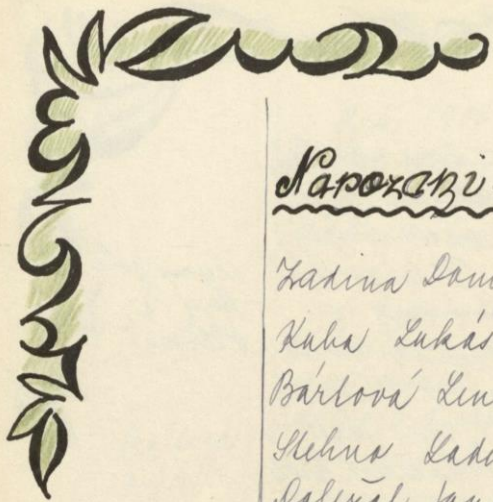 Narození
Zadina Dom
Kuba Lukáš
Bártová Len
Stehno Ladi